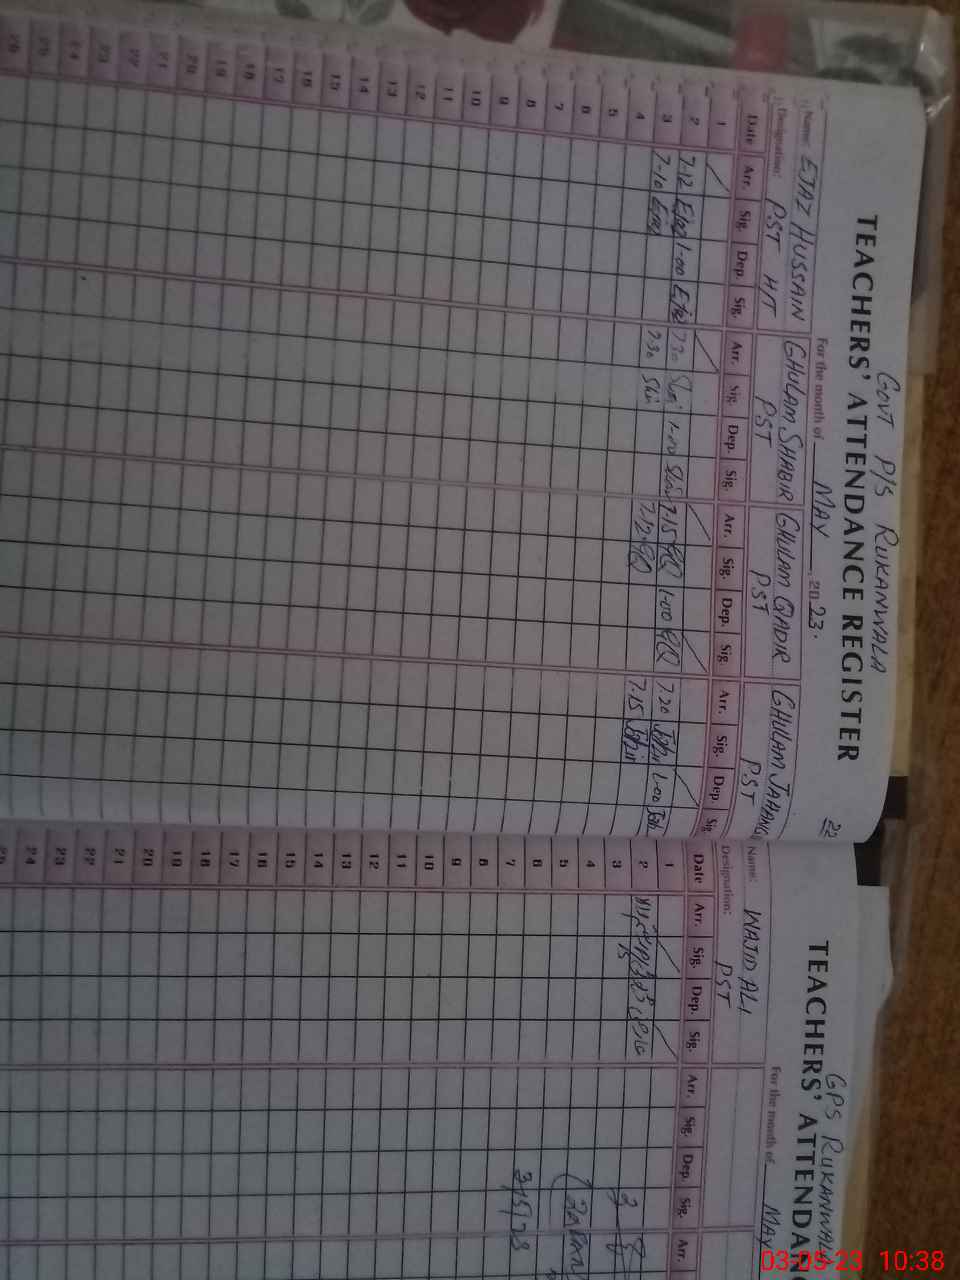 GOVT P/S RUKANWALA
TEACHERS' ATTENDANCE REGISTER
22
For the month of MAY, 2023.
Name: EJAZ HUSSAIN GHULAM SHABIR GHULAM QADIR GHULAM JAHANG
Designation: PST HT PST PST PST
Date Arr. Sig. Dep. Sig. Arr. Sig. Dep. Sig. Arr. Sig. Dep. Sig. Arr. Sig. Dep. Sig
1
2 7-12 Ejaz 1-00 Ejaz 7.30 1-00 7.15 GQ 1-00 GQ 7.20 1-00
3 7-10 Ejaz 7.30 7.12 GQ 7.15
4
5
6
7
8
9
10
11
12
13
14
15
16
17
18
19
20
21
22
23
24
25
26
GPS RUKANWALA
TEACHERS' ATTENDAN
For the month of MAY
Name: WAJID ALI
Designation: PST
Date Arr. Sig. Dep. Sig. Arr. Sig. Dep Sig. Arr.
1
2
3 15
4
5
6
7 3/5/23
8
9
10
11
12
13
14
15
16
17
18
19
20
21
22
23
24
25
03-05-23 10:38